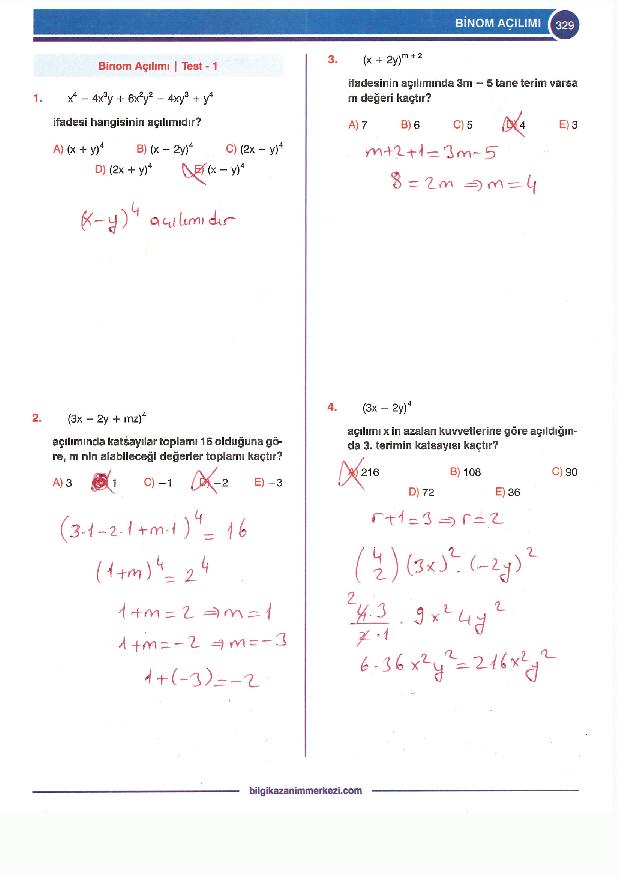 BİNOM AÇILIMI 329
Binom Açılımı | Test - 1
1. x⁴ − 4x³y + 6x²y² − 4xy³ + y⁴
ifadesi hangisinin açılımıdır?
A) (x + y)⁴ B) (x − 2y)⁴ C) (2x − y)⁴
D) (2x + y)⁴ E) (x − y)⁴
(x−y)⁴ açılımıdır
2. (3x − 2y + mz)⁴
açılımında katsayılar toplamı 16 olduğuna gö-
re, m nin alabileceği değerler toplamı kaçtır?
A) 3 1 C) −1 D) −2 E) −3
(3·1−2·1+m·1)⁴ = 16
(1+m)⁴ = 2⁴
1+m=2 ⇒ m=1
1+m=−2 ⇒ m=−3
1+(−3)=−2
3. (x + 2y)ᵐ⁺²
ifadesinin açılımında 3m − 5 tane terim varsa
m değeri kaçtır?
A) 7 B) 6 C) 5 D) 4 E) 3
m+2+1=3m−5
8=2m ⇒ m=4
4. (3x − 2y)⁴
açılımı x in azalan kuvvetlerine göre açıldığın-
da 3. terimin katsayısı kaçtır?
A) 216 B) 108 C) 90
D) 72 E) 36
r+1=3 ⇒ r=2
(4 2) (3x)² · (−2y)²
2
4·3 · 9x² 4y²
2·1
6·36x²y² = 216x²y²
bilgikazanimmerkezi.com